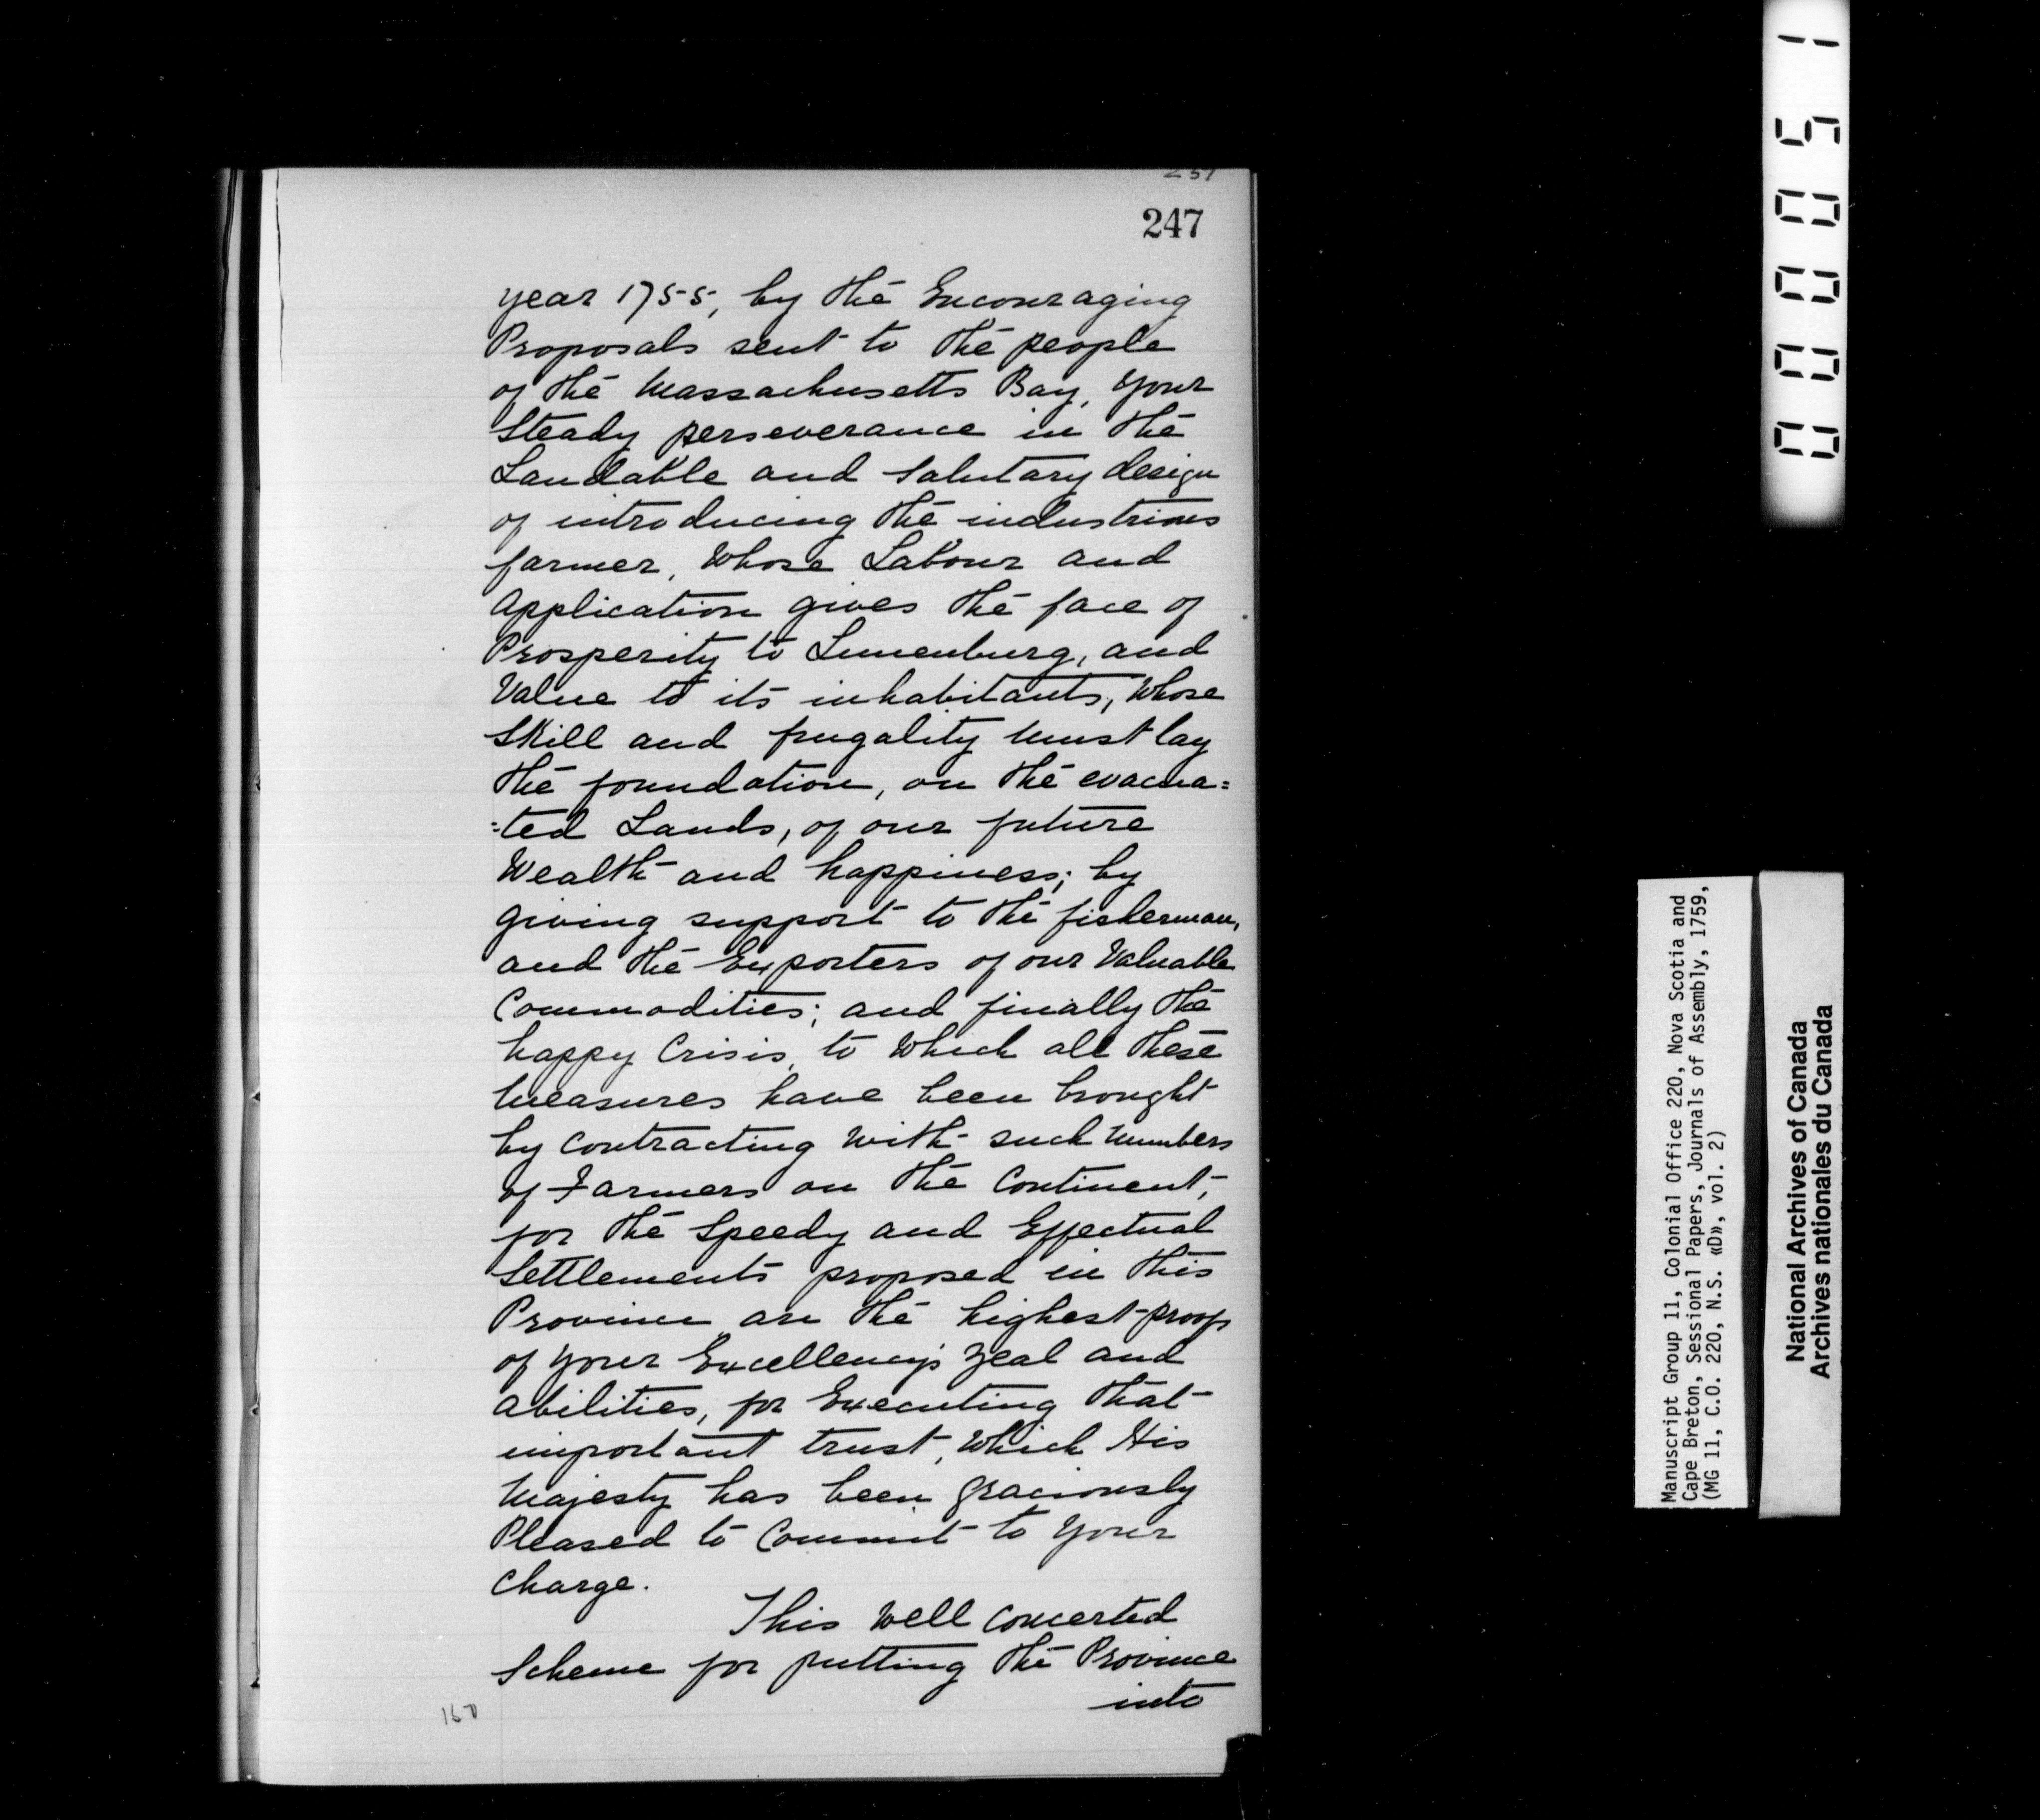 247
year 1755, by the Encouraging
Proposals sent to the people
of the Massachusetts Bay, your
Steady perseverance in the
Laudable and Salutary design
of introducing the industrious
farmer, Whose Labour and
Application gives the face of
Prosperity to Lunenburg, and
Value to its inhabitants, Whose
Skill and frugality must lay
the foundation, on the evacua=
=ted Lands, of our future
Wealth and happiness; by
giving support to the fisherman,
and the Exporters of our Valuable
Commodities; and finally the
happy Crisis, to Which all these
Measures have been brought
by Contracting With such Numbers
of Farmers on the Continent,
for the Speedy and Effectual
Settlements proposed in this
Province are the highest proofs
of your Excellency's Zeal and
Abilities, for Executing that
important trust, Which His
Majesty has been Graciously
Pleased to Commit to Your
Charge.
This Well Concerted
Scheme for putting the Province
into
150
000051
Manuscript Group 11, Colonial Office 220, Nova Scotia and
Cape Breton, Sessional Papers, Journals of Assembly, 1759,
(MG 11, C.O. 220, N.S. «D», vol. 2)
National Archives of Canada
Archives nationales du Canada